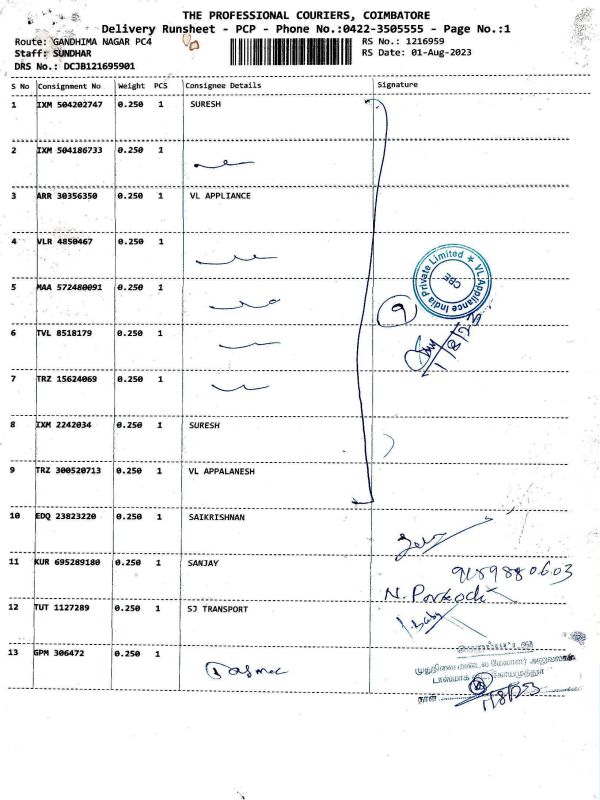 THE PROFESSIONAL COURIERS, COIMBATORE
Delivery Runsheet - PCP - Phone No.:0422-3505555 - Page No.:1
Route: GANDHIMA NAGAR PC4 RS No.: 1216959
Staff: SUNDHAR RS Date: 01-Aug-2023
DRS No.: DCJB121695901
S No Consignment No Weight PCS Consignee Details Signature
1 IXM 504202747 0.250 1 SURESH
2 IXM 504186733 0.250 1
3 ARR 30356350 0.250 1 VL APPLIANCE
4 VLR 4850467 0.250 1
VL Appliance India Private Limited
CBE
5 MAA 572480091 0.250 1
9
6 TVL 8518179 0.250 1
1/8/23
7 TRZ 15624069 0.250 1
8 IXM 2242034 0.250 1 SURESH
9 TRZ 300520713 0.250 1 VL APPALANESH
10 EDQ 23823220 0.250 1 SAIKRISHNAN
11 KUR 695289180 0.250 1 SANJAY
12 TUT 1127289 0.250 1 SJ TRANSPORT
13 GPM 306472 0.250 1 Tasmac
முதுநிலை மண்டல மேலாளர் அலுவலகம்
டாஸ்மாக் கோயமுத்தூர்
நாள்
1/8/23